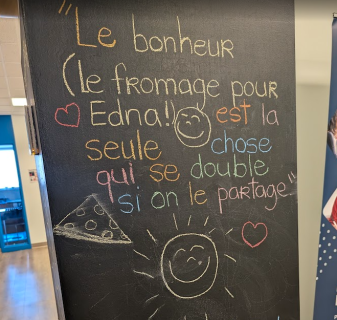 "Le bonheur
(Le fromage pour
Edna!) est la
seule chose
qui se double
si on le partage"